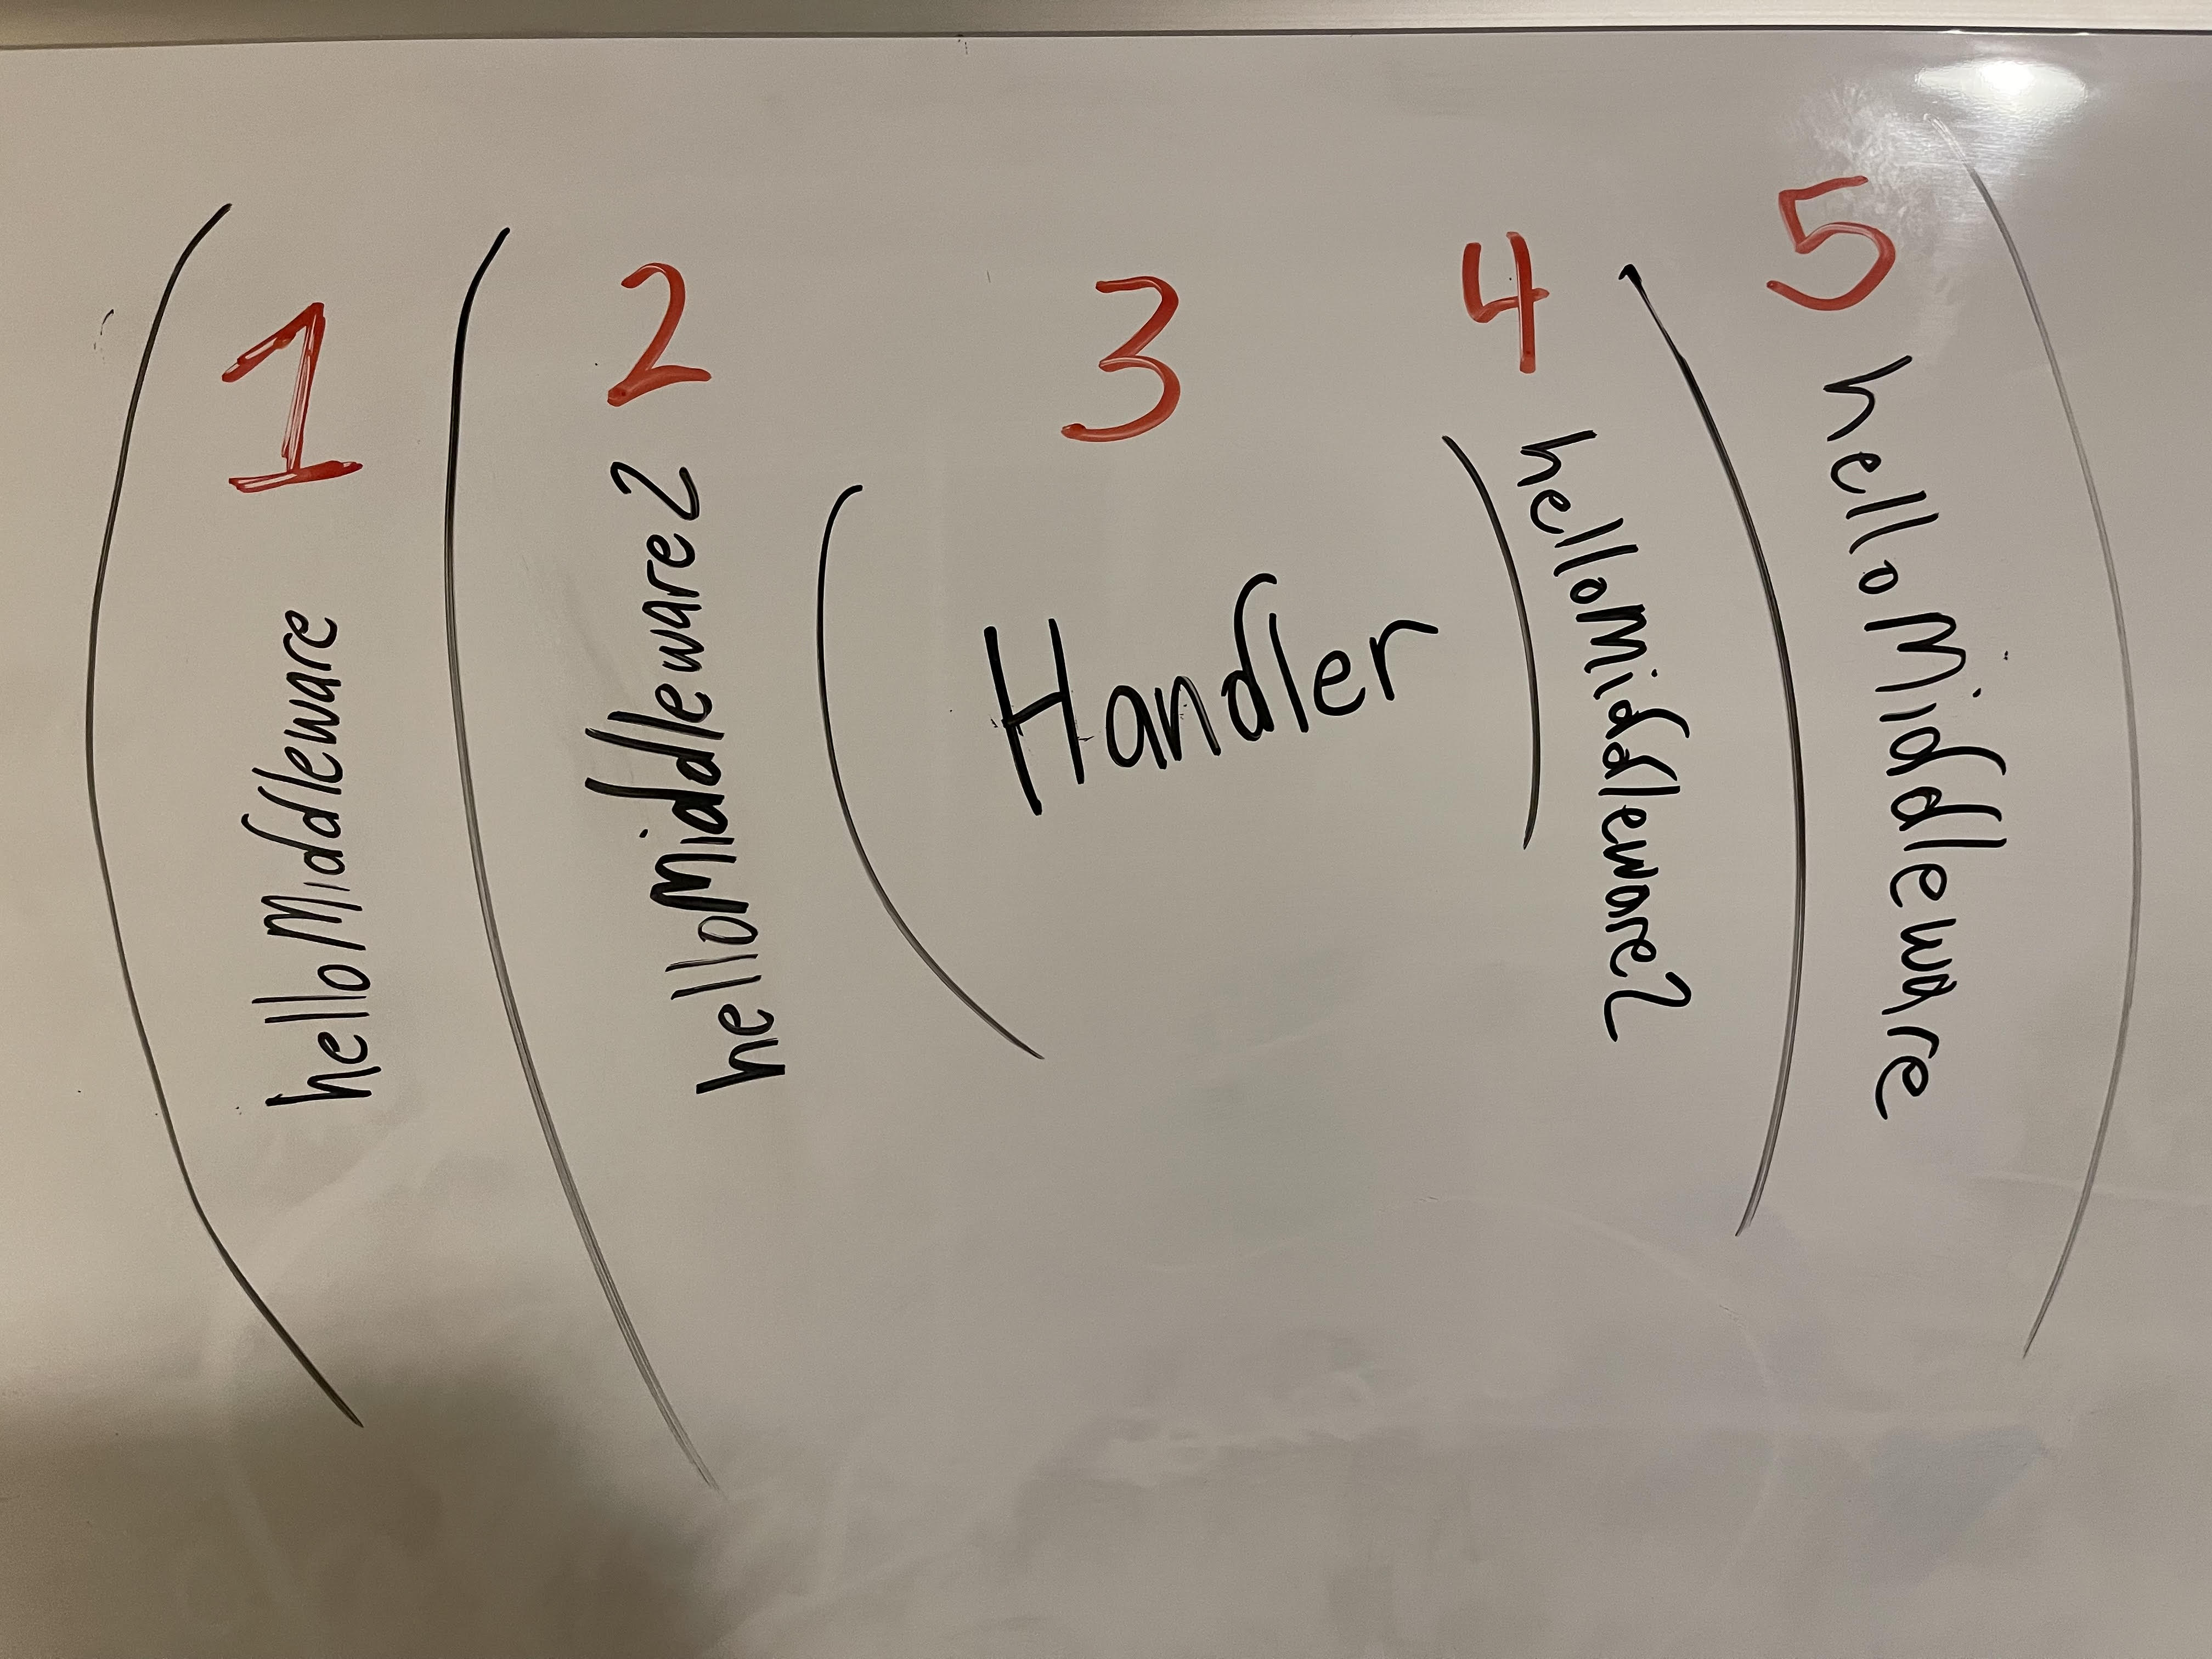 1
helloMiddleware
2
helloMiddleware2
3
Handler
4
helloMiddleware2
5
helloMiddleware